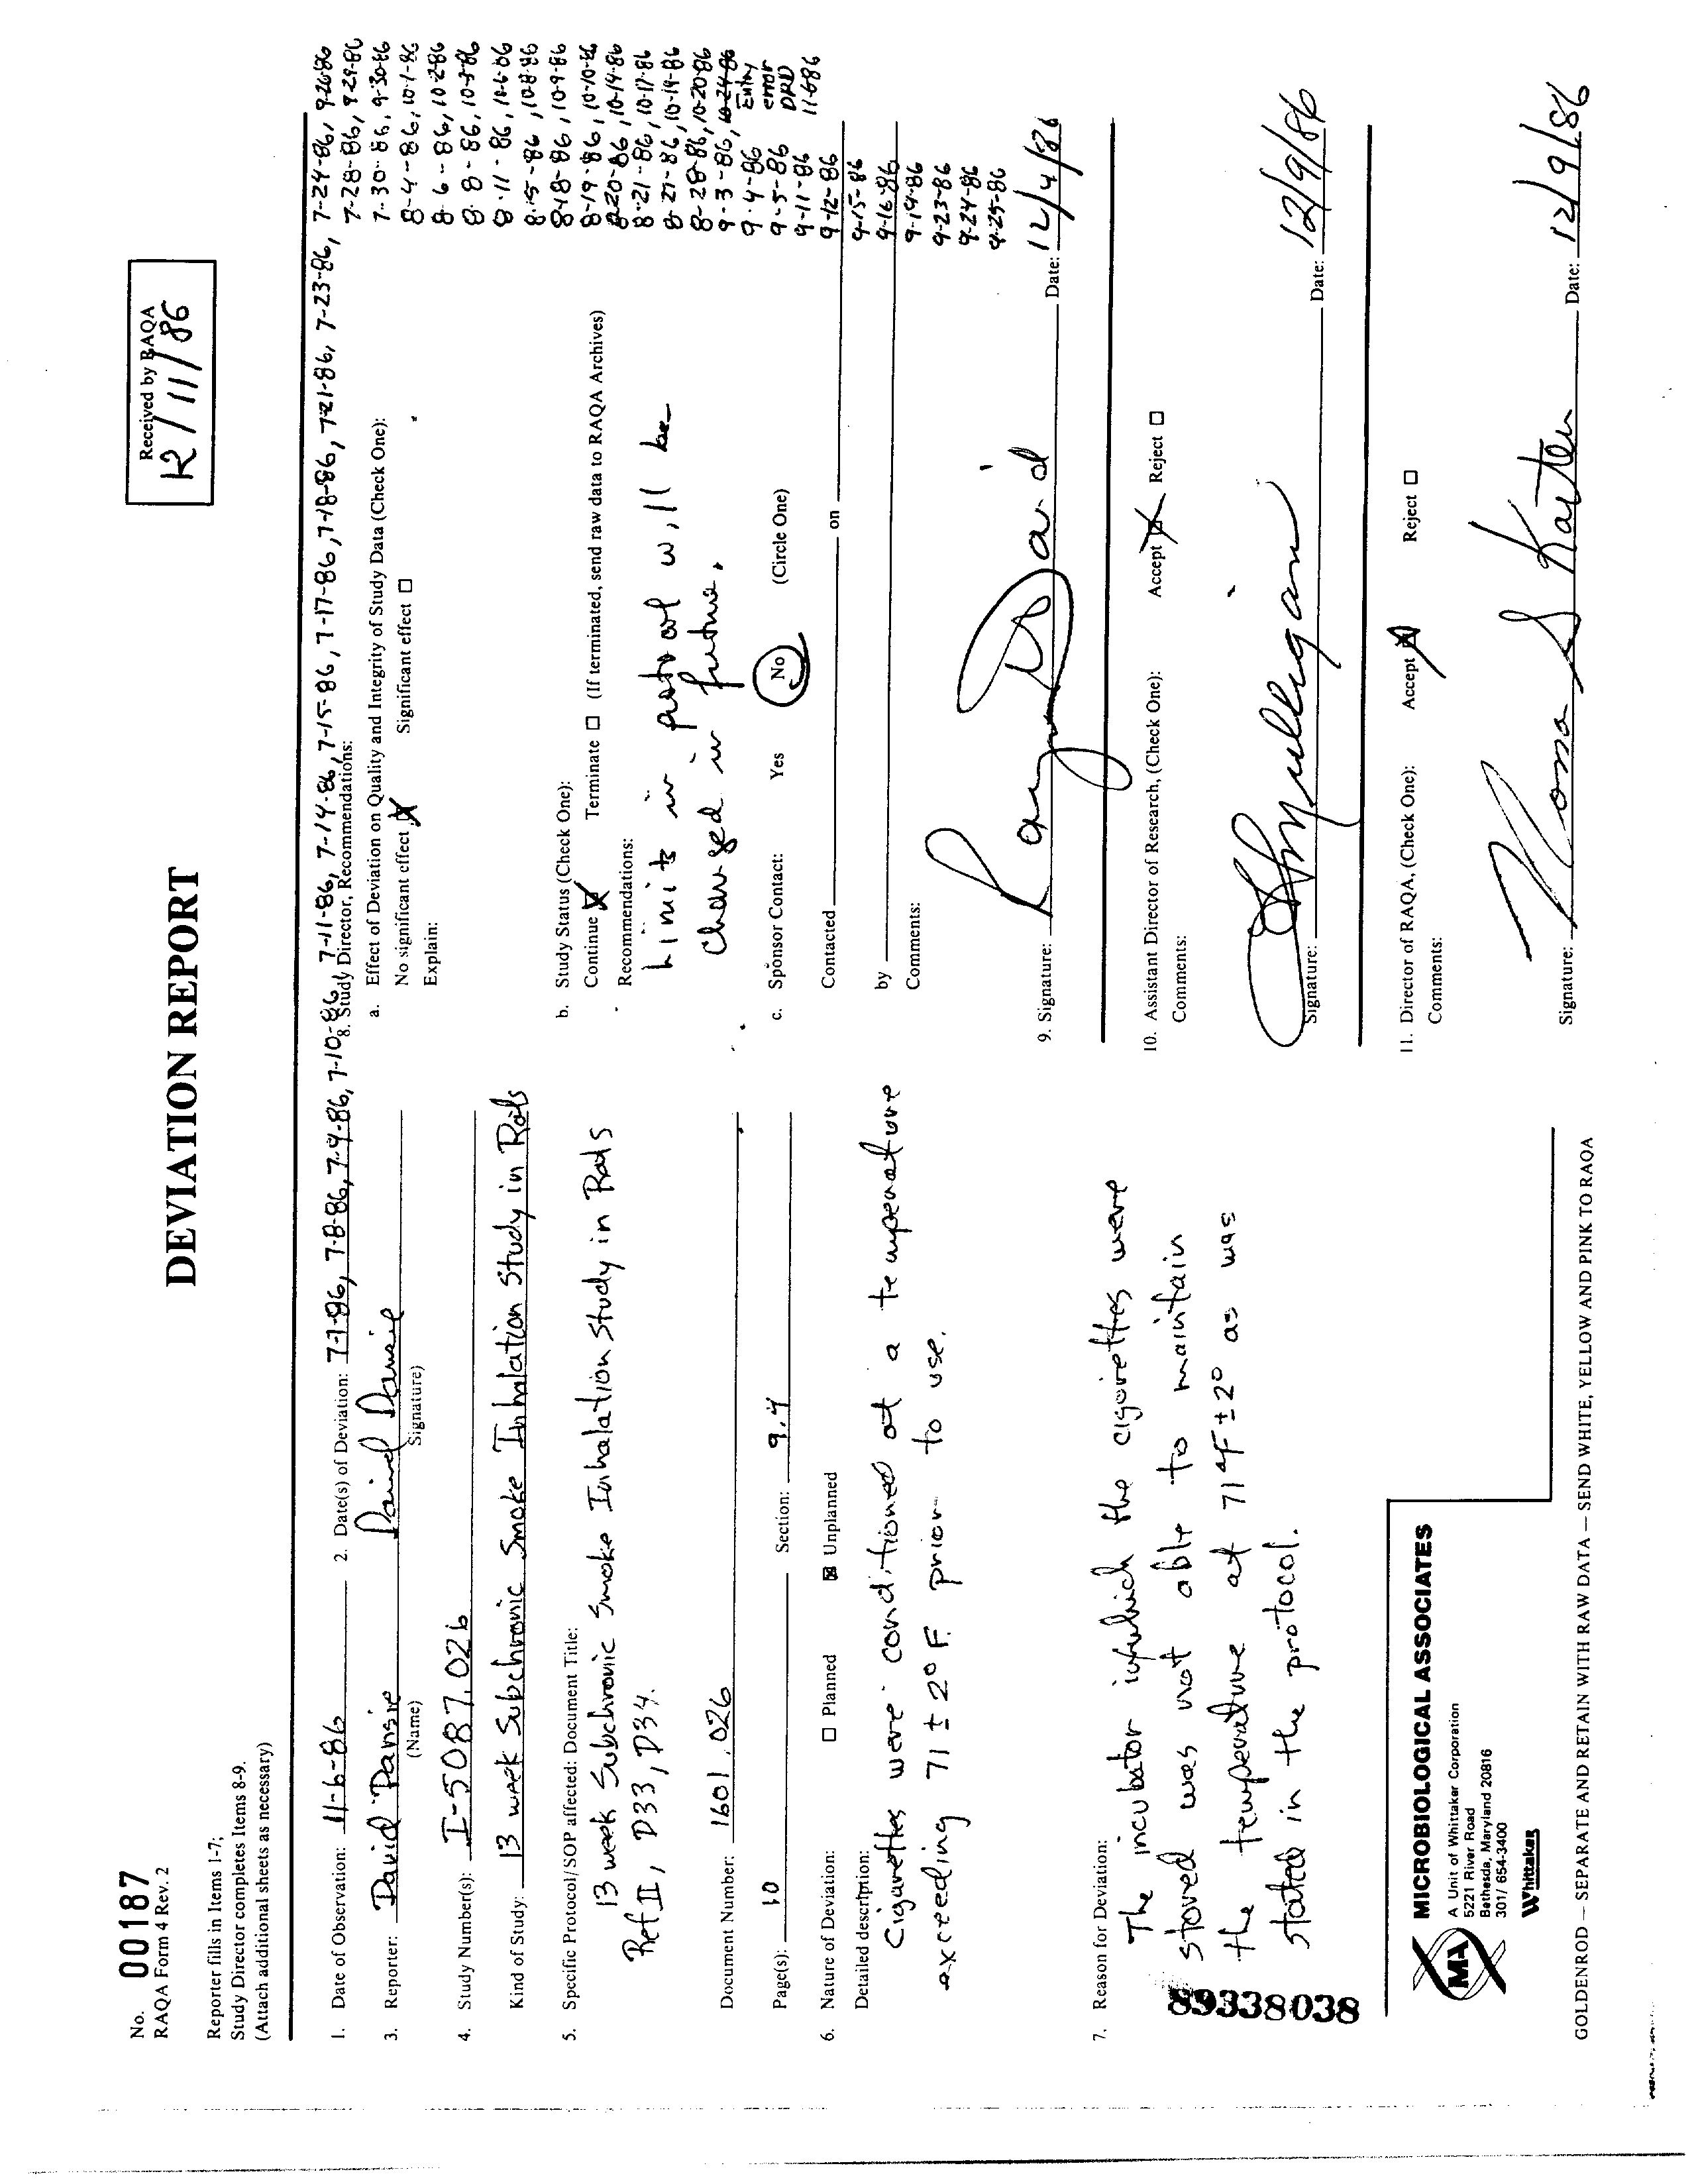 DEVIATION REPORT
No. 00187
RAQA Form 4 Rev. 2
Received by RAQA
12/11/86
Reporter fills in Items 1-7;
Study Director completes Items 8-9.
(Attach additional sheets as necessary)
1. Date of Observation: 11-6-86 2. Date(s) of Deviation: 7-7-86, 7-8-86, 7-9-86, 7-10-86, 7-11-86, 7-14-86, 7-15-86, 7-17-86, 7-18-86, 7-21-86, 7-23-86, 7-24-86, 9-26-86
7-28-86, 9-29-86
7-30-86, 9-30-86
8-4-86, 10-1-86
8-6-86, 10-2-86
8-8-86, 10-3-86
8-11-86, 10-6-86
8-15-86, 10-8-86
8-18-86, 10-9-86
8-19-86, 10-10-86
8-20-86, 10-14-86
8-21-86, 10-17-86
8-27-86, 10-19-86
8-28-86, 10-20-86
9-3-86, 10-24-86
9-4-86 Entry
9-5-86 error
9-11-86 DRD
9-12-86 11-6-86
9-15-86
9-16-86
9-19-86
9-23-86
9-24-86
9-25-86
3. Reporter: David Dansie David Dansie
(Name) (Signature)
4. Study Number(s): I-5087.026
Kind of Study: 13 week Subchronic Smoke Inhalation Study in Rats
5. Specific Protocol/SOP affected: Document Title:
13 week Subchronic Smoke Inhalation Study in Rats
Ref II, D33, D34.
Document Number: 1601.026
Page(s): 10 Section: 9.4
6. Nature of Deviation: ☐ Planned ☒ Unplanned
Detailed description:
Cigarettes were conditioned at a temperature
exceeding 71 ± 2° F prior to use.
7. Reason for Deviation:
The incubator in which the cigarettes were
stored was not able to maintain
the temperature at 71°F ± 2° as was
stated in the protocol.
89338038
MICROBIOLOGICAL ASSOCIATES
MA
A Unit of Whittaker Corporation
5221 River Road
Bethesda, Maryland 20816
301/ 654-3400
Whittaker
8. Study Director, Recommendations:
a. Effect of Deviation on Quality and Integrity of Study Data (Check One):
No significant effect ☒ Significant effect ☐
Explain:
b. Study Status (Check One):
Continue ☒ Terminate ☐ (If terminated, send raw data to RAQA Archives)
Recommendations:
Limits in protocol will be
changed in future.
c. Sponsor Contact: Yes No (Circle One)
Contacted on
by
Comments:
9. Signature: Date: 12/4/86
10. Assistant Director of Research, (Check One): Accept ☒ Reject ☐
Comments:
Signature: Date: 12/9/86
11. Director of RAQA, (Check One): Accept ☒ Reject ☐
Comments:
Signature: Date: 12/9/86
GOLDENROD — SEPARATE AND RETAIN WITH RAW DATA — SEND WHITE, YELLOW AND PINK TO RAQA